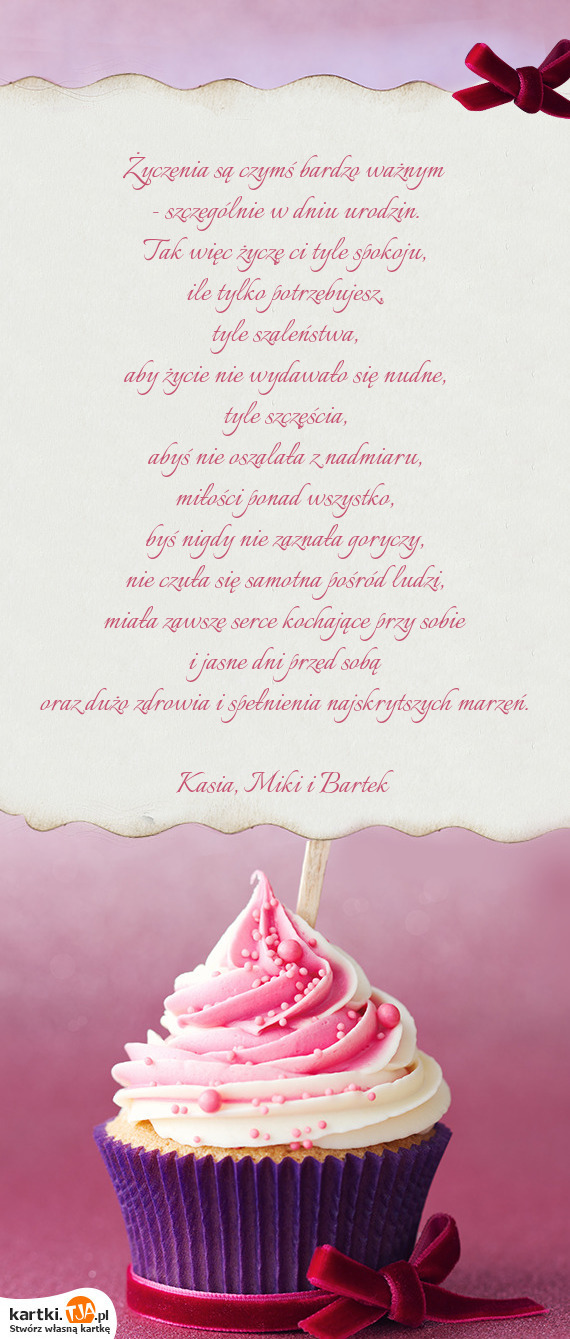 Życzenia są czymś bardzo ważnym
- szczególnie w dniu urodzin.
Tak więc życzę ci tyle spokoju,
ile tylko potrzebujesz,
tyle szaleństwa,
aby życie nie wydawało się nudne,
tyle szczęścia,
abyś nie oszalała z nadmiaru,
miłości ponad wszystko,
byś nigdy nie zaznała goryczy,
nie czuła się samotna pośród ludzi,
miała zawsze serce kochające przy sobie
i jasne dni przed sobą
oraz dużo zdrowia i spełnienia najskrytszych marzeń.
Kasia, Miki i Bartek
kartki.TJA.pl
Stwórz własną kartkę